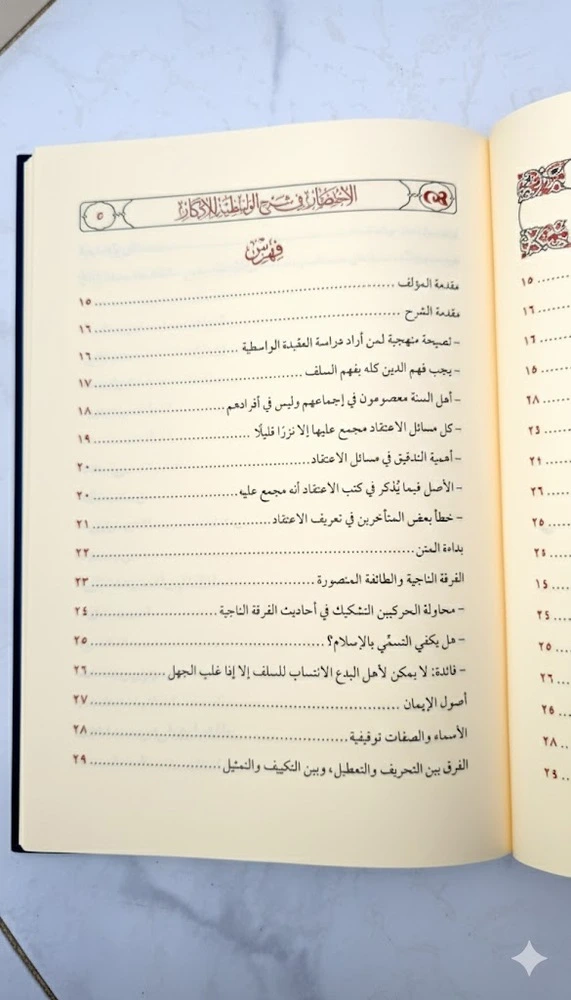 الاختصار في شرح الواسطية للأذكار
٥
فهرس
مقدمة المؤلف ... ١٥
مقدمة الشرح ... ١٦
- نصيحة منهجية لمن أراد دراسة العقيدة الواسطية ... ١٦
- يجب فهم الدين كله بفهم السلف ... ١٧
- أهل السنة معصومون في إجماعهم وليس في أفرادهم ... ١٨
- كل مسائل الاعتقاد مجمع عليها إلا نزرًا قليلًا ... ١٩
- أهمية التدقيق في مسائل الاعتقاد ... ٢٠
- الأصل فيما يُذكر في كتب الاعتقاد أنه مجمع عليه ... ٢٠
- خطأ بعض المتأخرين في تعريف الاعتقاد ... ٢١
بداءة المتن ... ٢٢
الفرقة الناجية والطائفة المنصورة ... ٢٣
- محاولة الحركيين التشكيك في أحاديث الفرقة الناجية ... ٢٤
- هل يكفي التسمِّي بالإسلام؟ ... ٢٥
- فائدة: لا يمكن لأهل البدع الانتساب للسلف إلا إذا غلب الجهل ... ٢٦
أصول الإيمان ... ٢٧
الأسماء والصفات توقيفية ... ٢٨
الفرق بين التحريف والتعطيل، وبين التكييف والتمثيل ... ٢٩
١٥
١٦
١٦
١٥
٢٨
٢٣
٢٤
٢٦
٢٥
٢٤
١٤
٢٤
٢٥
٢٦
٢٥
٢٨
٢٤